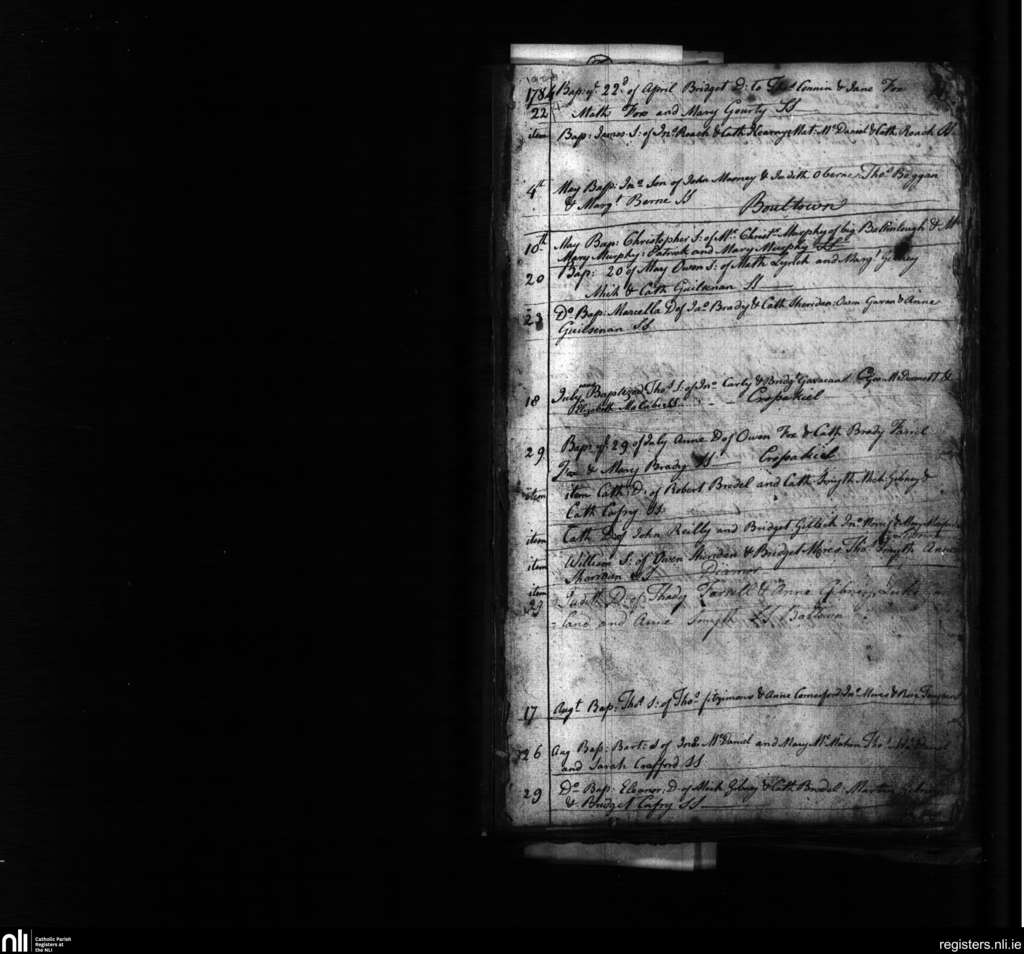 1784 Bap: ye. 22d of April Bridget D: to Thos Connin & Jane Fox
22 Maths Fox and Mary Gourty SS
item Bap: James S: of Jno Roach & Cath Kearny Mat: Mc Daniel & Cath Roach SS
4th May Bap: Jno Son of John Marney & Judith Oberne Thos Boggan
& Margt Berne SS Boultown
10th May Bap: Christopher S: of Mr. Christr Murphy of big Ballinlough & Mrs
Mary Murphy: Patrick and Mary Murphy SS
20 Bap: 20 of May Owen S: of Math Lynch and Margt Gibney
Mich & Cath Guilsenan SS
23 Do Bap: Marcella D of Jno Brady & Cath Sheridan: Owen Gavan & Anne
Guilsenan SS
18 July Baptized Thos S: of Jno Carly & Bridgt Gavacan Geo: McDermott &
Elizabeth SS Crossakiel
29 Bap: ye. 29 of July Anne D of Owen Fox & Cath Brady Farrel
Fox & Mary Brady SS Crossakiel
item item Cath: D: of Robert Bredel and Cath Smyth Mich: Gibney &
Cath Cafry SS
item Cath D of John Reilly and Bridget Gillick Jno
item William S: of Owen Sheridan & Bridget Mires Thos Smyth Anne
Sherman SS Diamor
item Judith D: of Thady Farrell & Anne Gibney, Luke
29 land and Anne Smyth SS Baltown
17 Augt Bap: Thos S: of Thos fitzimons & Anne Comerford Jno Mires & Rose
26 Aug Bap: Bart: S of Jno Mc Daniel and Mary Mc Mahon Thos Mc Daniel
and Sarah Crafford SS
29 Do Bap: Eleanor: D of Mich Gibney & Cath Bredel: Martin Gibney
& Bridget Cafry SS
nli Catholic Parish
Registers at
the NLI
registers.nli.ie